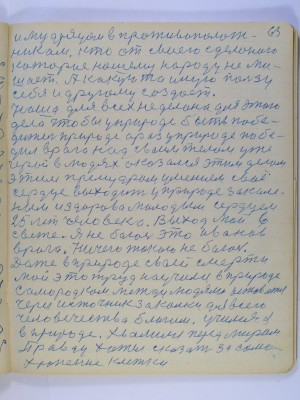 63
и мудрецом в противополож-
никам, кто от своего сделанного
которые нашему народу не ме-
шает. А какую то иную пользу
себя и другому создает.
Наша для всех неделена для этого
дела чтобы у природе быть побе-
дителем природе а раз у природе побе-
дил врага над своим телом уже
герой в людях оказался этим делом
этим премудрам умением своё
сердце выходит у природе закали-
нным издорова молодым сердцем
25 лет человека. Выход мой в
свете. Я не боюсь это Иванов
врага. Ничего только не боюсь.
Даже в природе своей смерти
мой это труд научили в природе
самородком между людями
через источник закалки для всего
человечества благим. учился я
в природе. Хвалился перед миром
правду хотел сказать за само-
хранение клетки